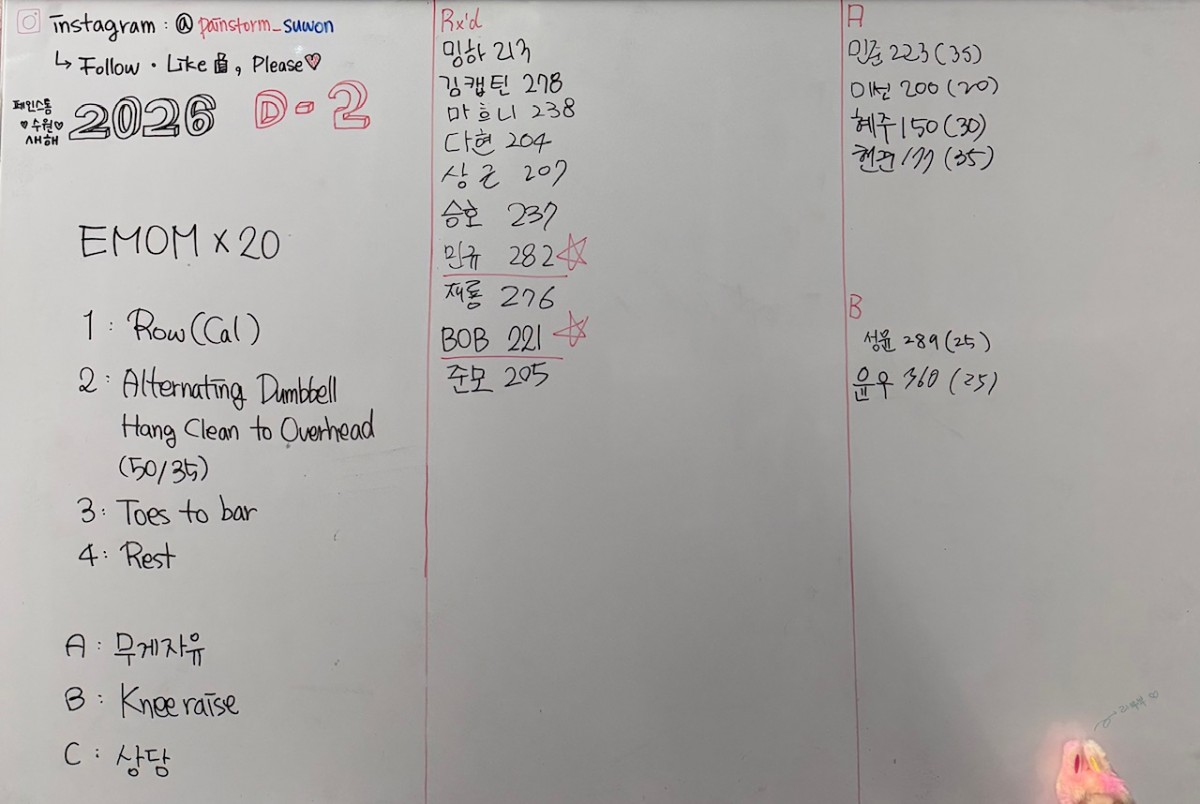 instagram : @ painstorm_suwon
↳ Follow · Like 👍, Please♡
페인스톰
♡수원♡
새해
2026 D-2
EMOM x 20
1 : Row (Cal)
2 : Alternating Dumbbell
Hang Clean to Overhead
(50/35)
3 : Toes to bar
4 : Rest
A : 무게자유
B : Knee raise
C : 상담
Rx'd
밍하 213
김캡틴 278
마흐니 238
다현 204
상근 207
승호 237
민규 282 ☆
재룡 276
BOB 221 ☆
준모 205
A
민준 223 (35)
미선 200 (20)
혜주 150 (30)
현진 177 (35)
B
성윤 289 (25)
윤우 360 (25)